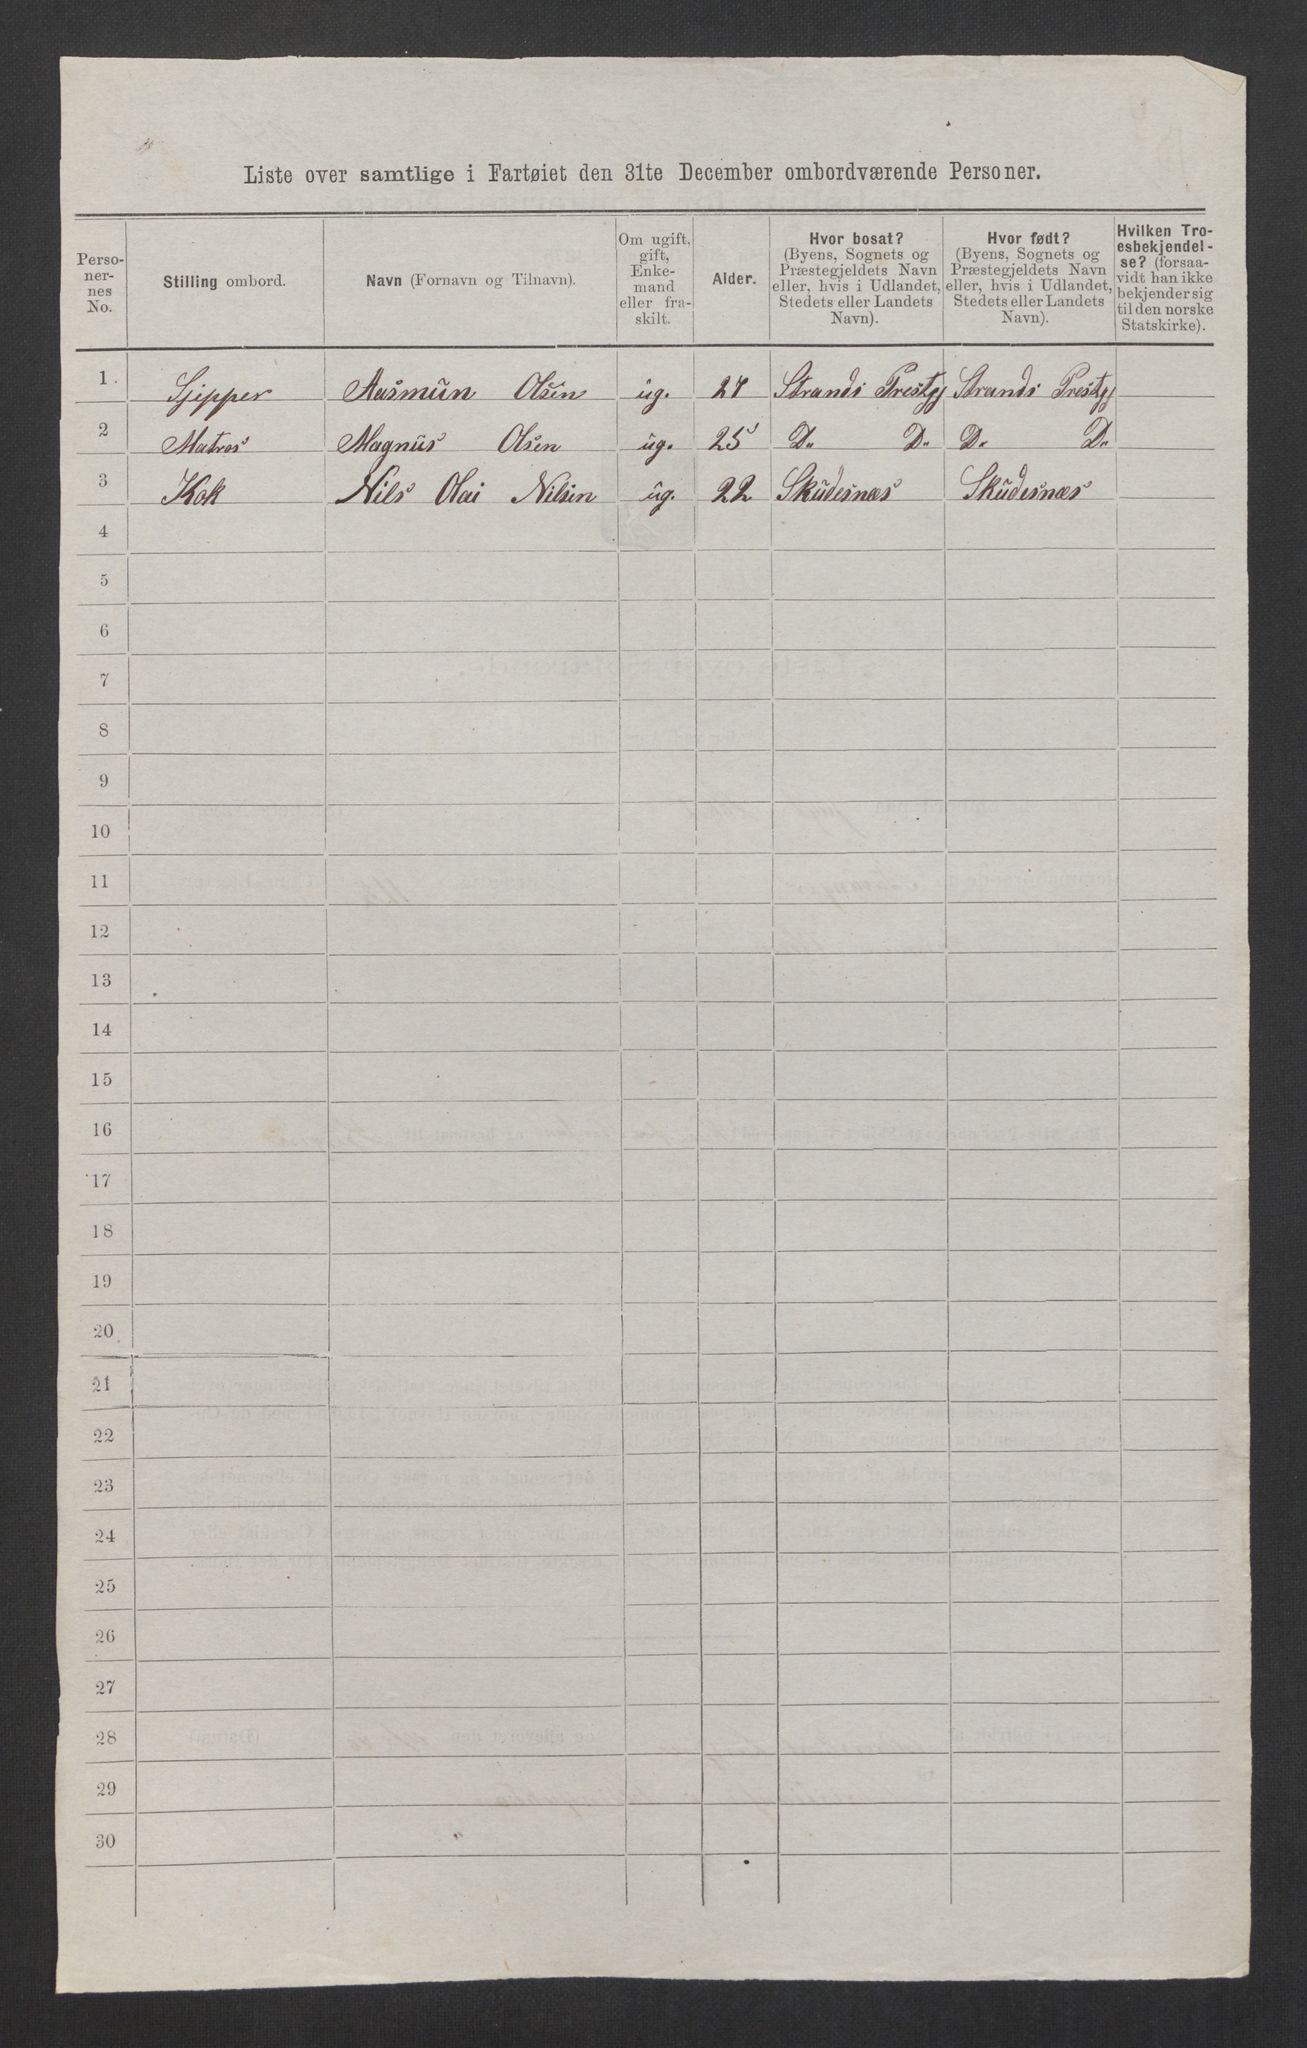 Liste over samtlige i Fartøiet den 31te December ombordværende Personer.
Perso-
ner-
nes
No.
Stilling ombord.
Navn (Fornavn og Tilnavn).
Om ugift,
gift,
Enke-
mand
eller fra-
skilt.
Alder.
Hvor bosat?
(Byens, Sognets og
Præstegjeldets Navn
eller, hvis i Udlandet,
Stedets eller Landets
Navn).
Hvor født?
(Byens, Sognets og
Præstegjeldets Navn
eller, hvis i Udlandet,
Stedets eller Landets
Navn).
Hvilken Tro-
esbekjendel-
se? (forsaa-
vidt han ikke
bekjender sig
til den norske
Statskirke).
1 Sjipper Aasmün Olsen üg. 27 Strands Prestgj Strands Prestgj
2 Matros Magnüs Olsen üg. 25 D. D. D. D.
3 Kok Nils Olai Nilsen üg. 22 Sküdesnæs Sküdesnæs
4
5
6
7
8
9
10
11
12
13
14
15
16
17
18
19
20
21
22
23
24
25
26
27
28
29
30